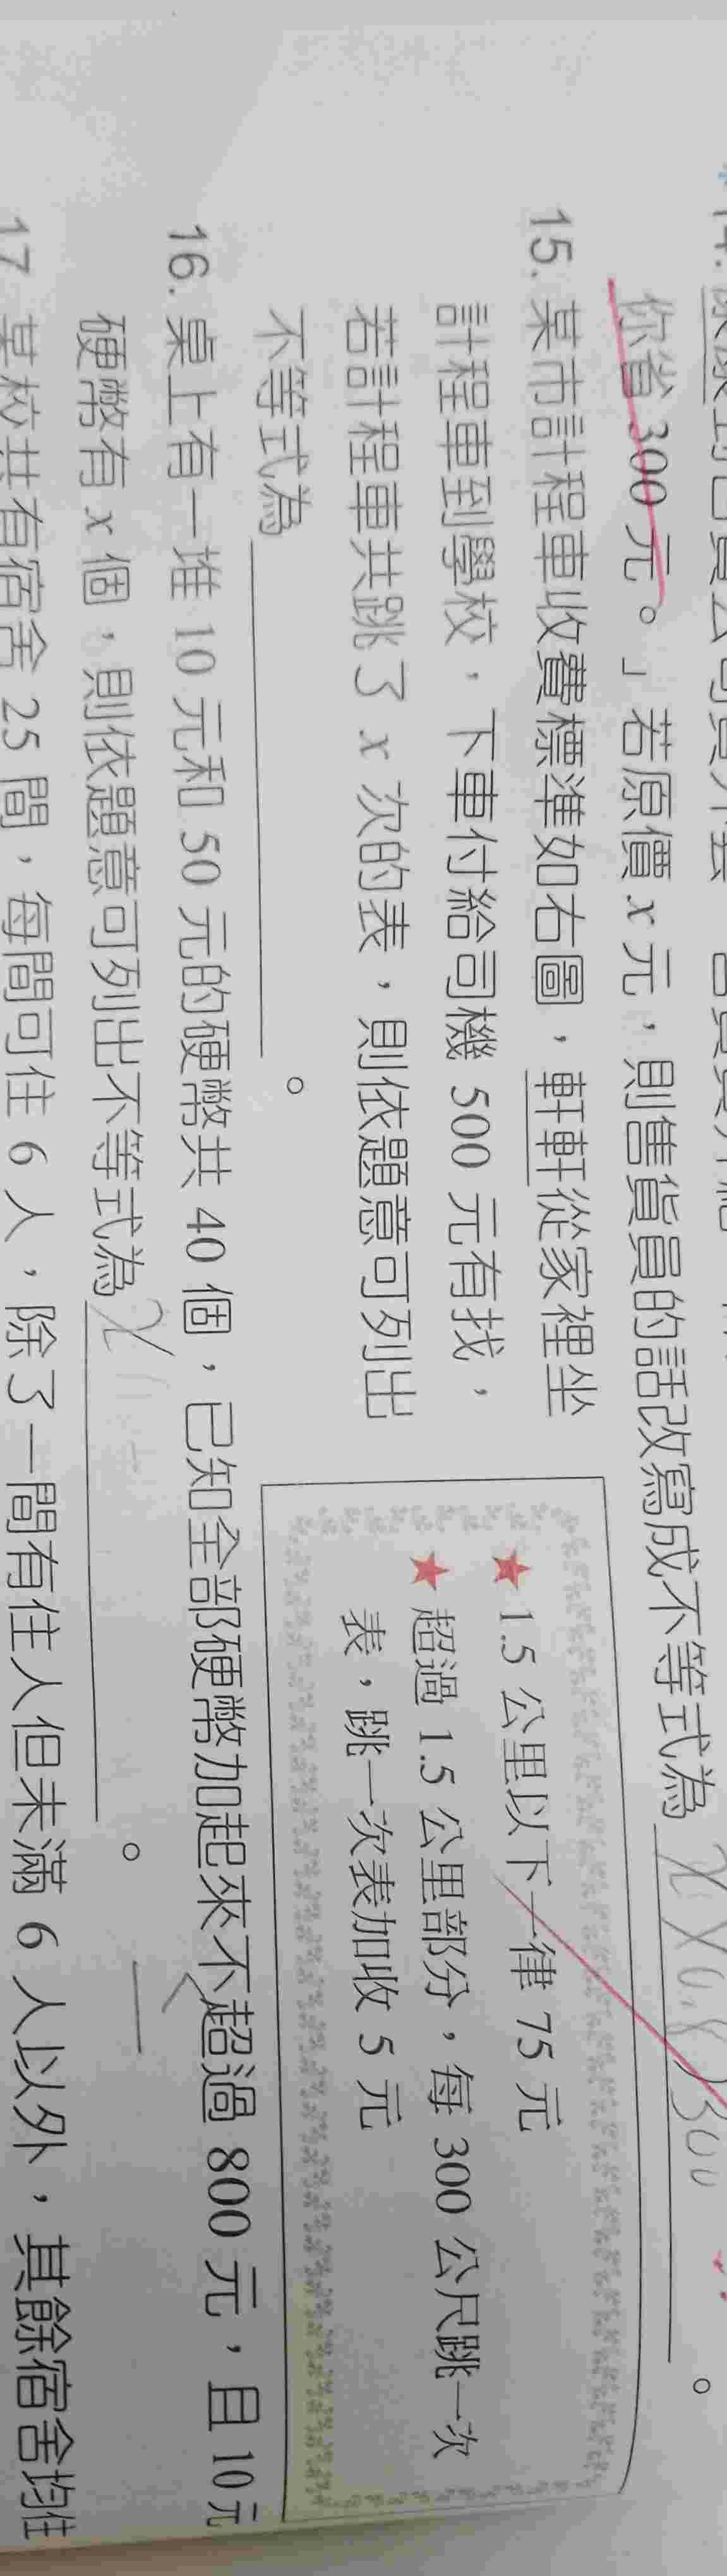 你省 300 元。」若原價 x 元，則售貨員的話改寫成不等式為
15. 某市計程車收費標準如右圖，軒軒從家裡坐
計程車到學校，下車付給司機 500 元有找，
若計程車共跳了 x 次的表，則依題意可列出
不等式為 。
★ 1.5 公里以下一律 75 元
★ 超過 1.5 公里部分，每 300 公尺跳一次
表，跳一次表加收 5 元
16. 桌上有一堆 10 元和 50 元的硬幣共 40 個，已知全部硬幣加起來不超過 800 元，且 10 元
硬幣有 x 個，則依題意可列出不等式為 x 。
17 某校共有宿舍 25 間，每間可住 6 人，除了一間有住人但未滿 6 人以外，其餘宿舍均住